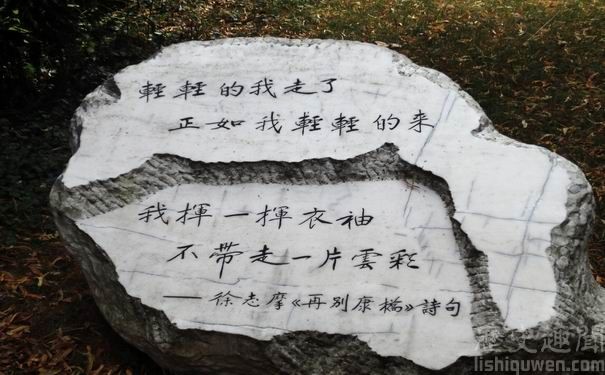 輕輕的我走了
正如我輕輕的来
我揮一揮衣袖
不帶走一片雲彩
——徐志摩《再别康橋》詩句
歷史趣聞
lishiquwen.com